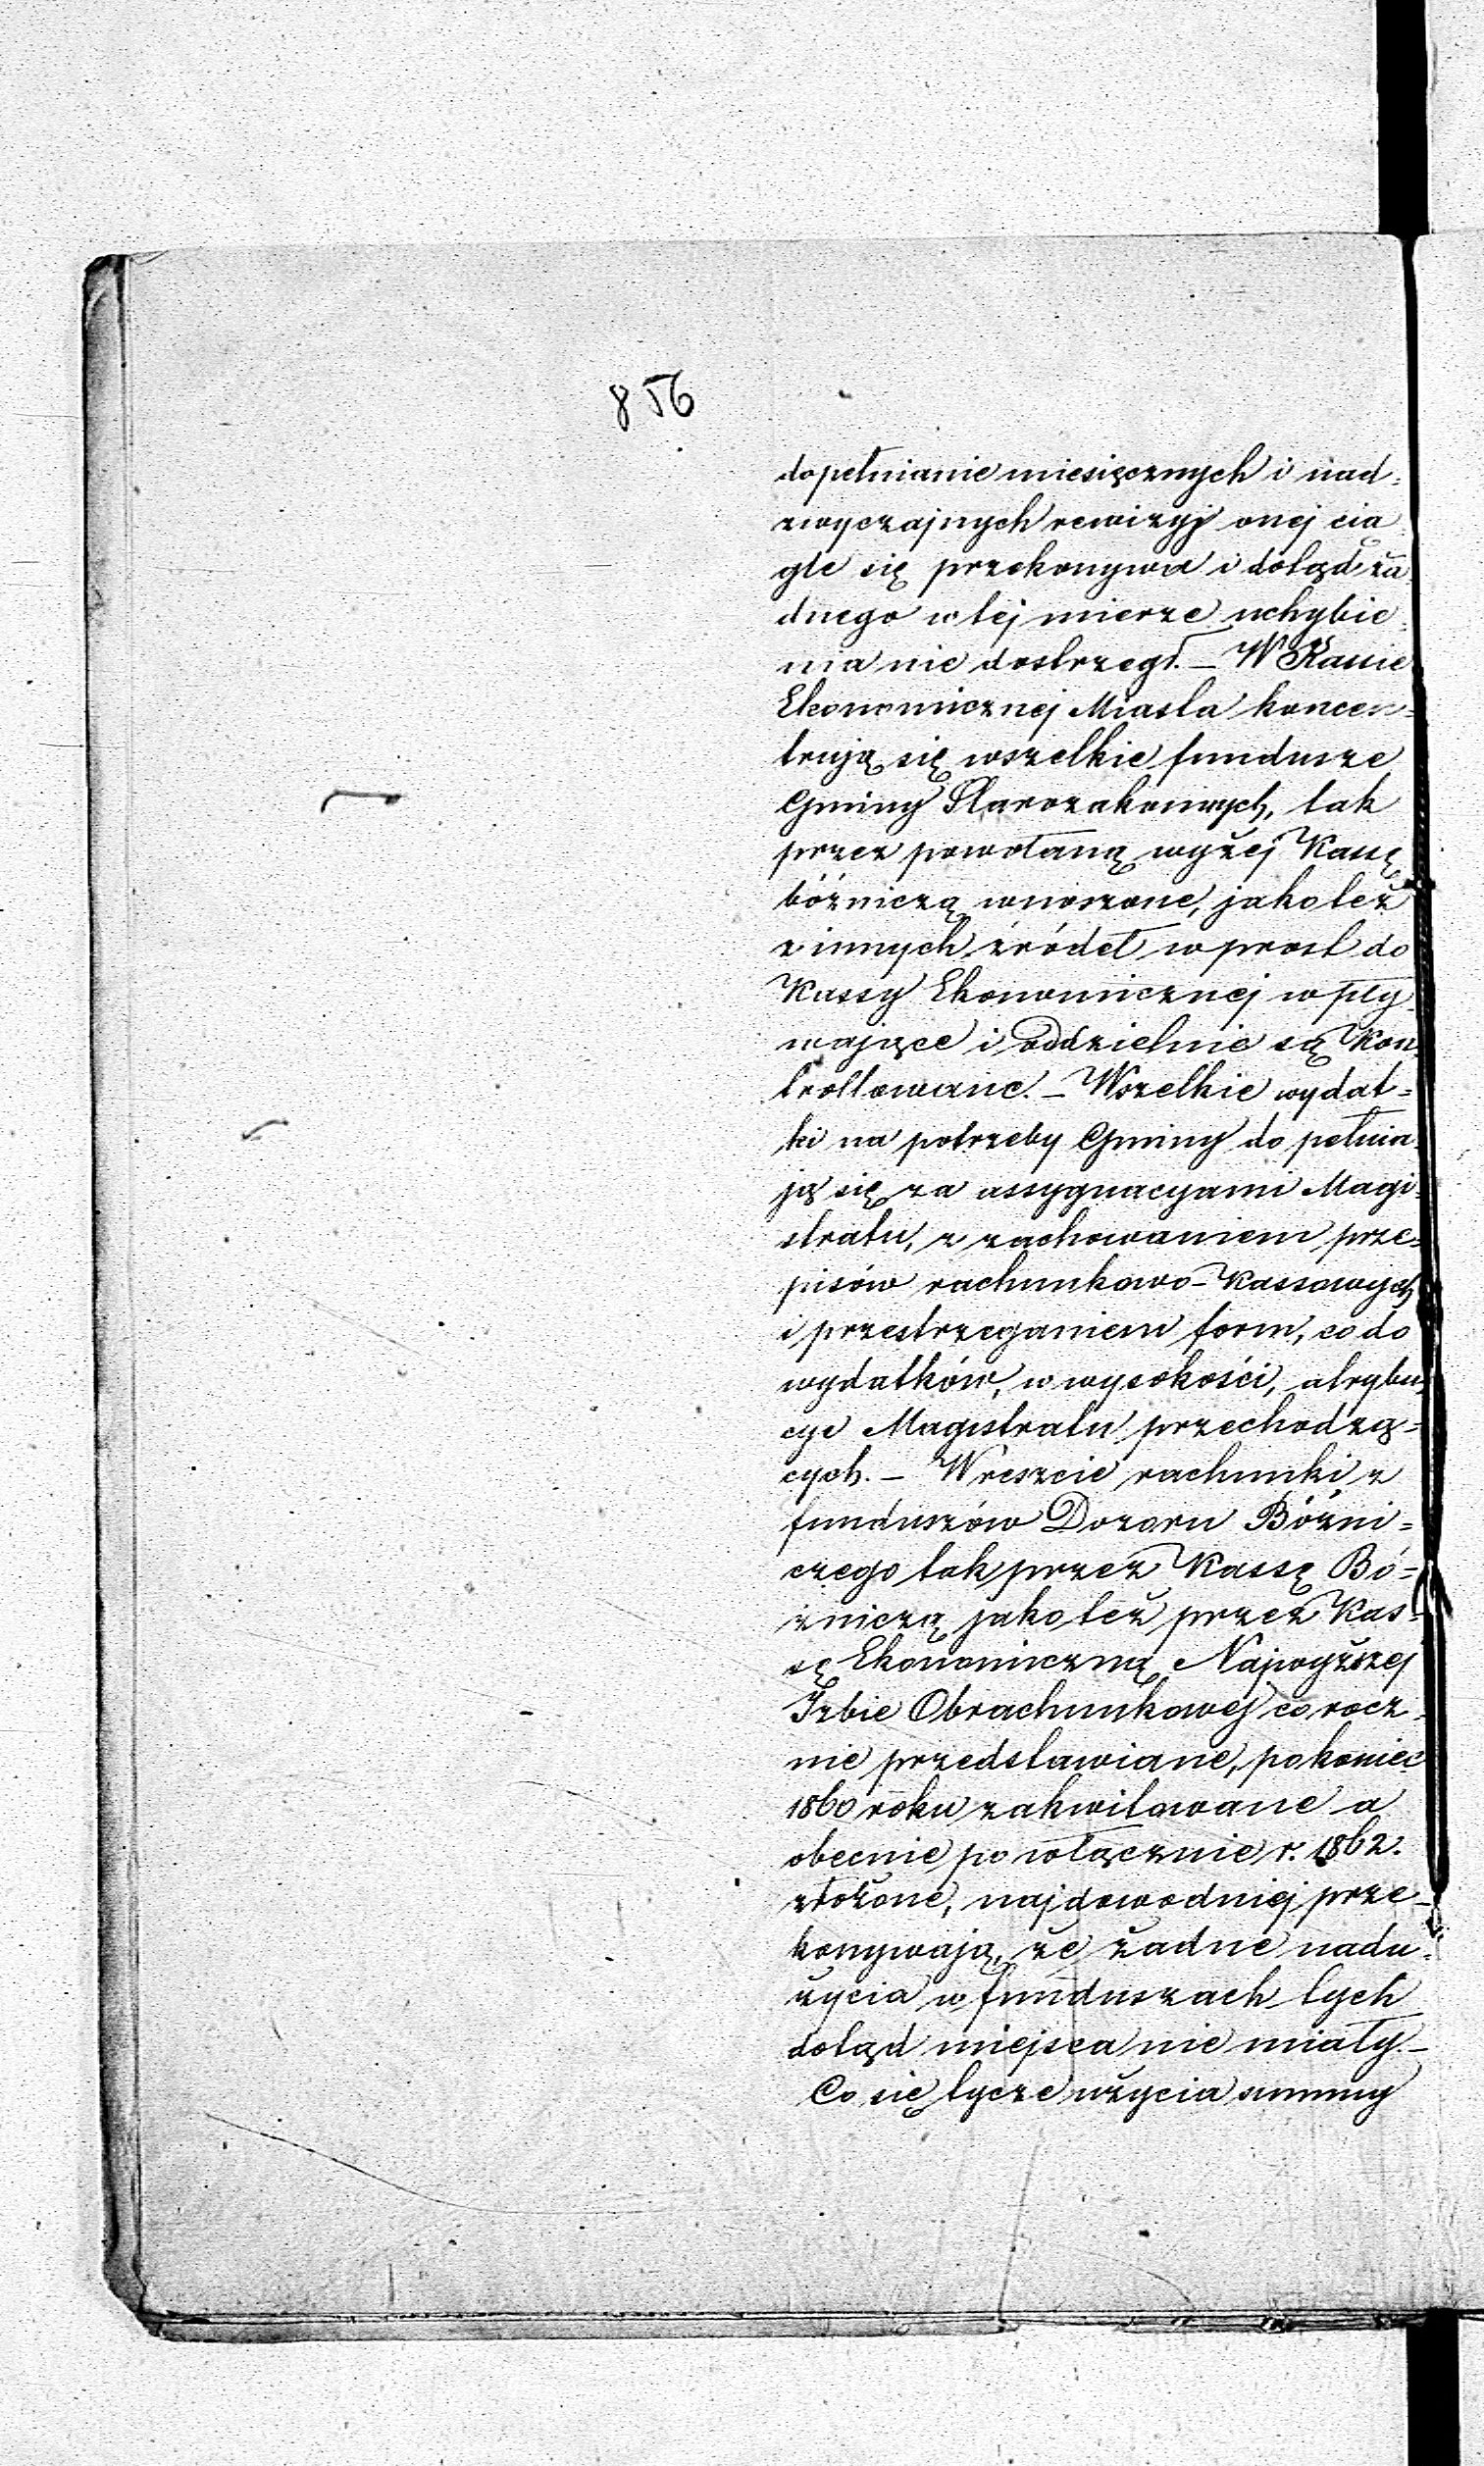 856
dopełnianie miesięcznych i nad=
zwyczajnych rewizyj onej cią
gle się przekonywa i dotąd ża
dnego w tej mierze uchybie=
nia nie dostrzegł. – W Kassie
Ekonomicznej Miasta koncen=
trują się wszelkie fundusze
Gminy Starozakonnych, tak
przez powołaną wyżej Kassę
bóźniczą wnoszone, jako też
z innych źródeł wprost do
Kassy Ekonomicznej wpły=
wające i oddzielnie są Kon
trollowane. – Wszelkie wydat=
ki na potrzeby Gminy dopełnia
ją się za assygnacyami Magi=
stratu, z zachowaniem prze=
pisów rachunkowo-Kassowych
i przestrzeganiem form, co do
wydatków, w wysokości, atrybu
cye Magistratu przechodzą=
cych. – Wreszcie rachunki z
funduszów Dozoru Bóźni=
czego tak przez Kassę Bó=
źniczą jako też przez Kas=
sę Ekonomiczną Najwyższej
Izbie Obrachunkowej corocz=
nie przedstawiane, po koniec
1860 roku zakwitowane a
obecnie po włącznie r. 1862.
złożone, najdowodniej prze=
konywają, że żadne nadu=
życia w funduszach tych
dotąd miejsca nie miały. –
Co się tycze użycia summy